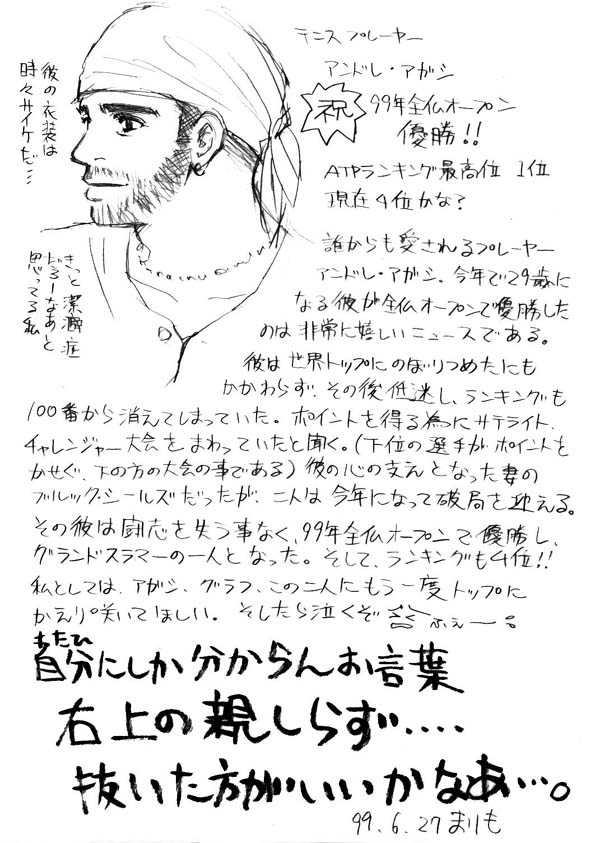 テニスプレーヤー
アンドレ・アガシ
祝
99年全仏オープン
優勝!!
ATPランキング最高位 1位
現在4位かな?
彼の衣装は
時々サイケだ…
きっと潔癖症
だろーなあと
思ってる私
誰からも愛されるプレーヤー
アンドレ・アガシ。今年で29歳に
なる彼が全仏オープンで優勝した
のは非常に嬉しいニュースである。
彼は世界トップにのぼりつめたにも
かかわらず、その後低迷し、ランキングも
100番から消えてしまっていた。ポイントを得る為にサテライト、
チャレンジャー大会をまわっていたと聞く。(下位の選手がポイントを
かせぐ、下の方の大会の事である)彼の心の支えとなった妻の
ブルック・シールズだったが、二人は今年になって破局を迎える。
その彼は闘志を失う事なく、99年全仏オープンで優勝し、
グランドスラマーの一人となった。そして、ランキングも4位!!
私としては、アガシ、グラフ、この二人にもう一度トップに
かえり咲いてほしい。そしたら泣くぞ ふぇー
自分にしか分からんお言葉
右上の親しらず....
抜いた方がいいかなあ…。
99.6.27 まりも